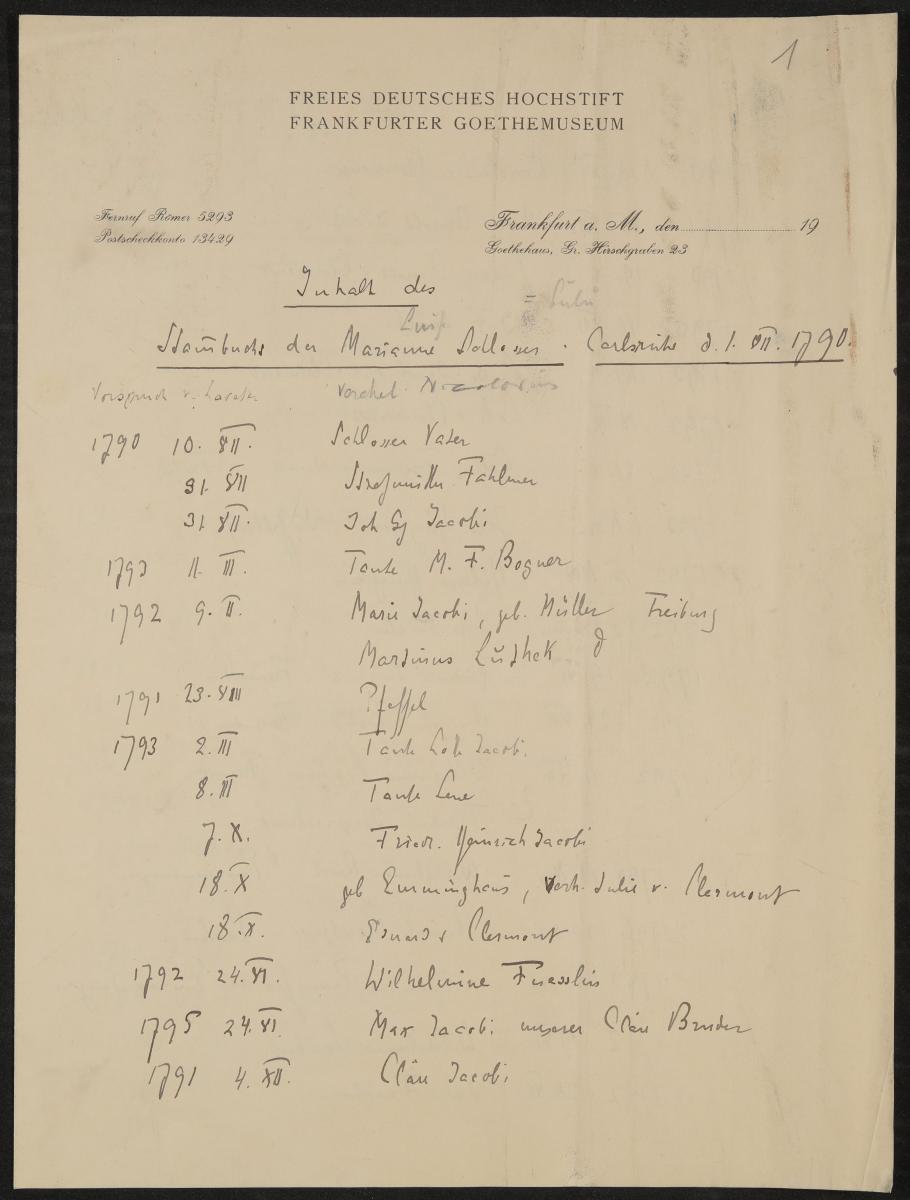 1
FREIES DEUTSCHES HOCHSTIFT
FRANKFURTER GOETHEMUSEUM
Fernruf Römer 5293
Postscheckkonto 13429
Frankfurt a. M., den 19
Goethehaus, Gr. Hirschgraben 23
Inhalt des
= Lulu
Luise
Stam̄buchs der Marianne Schlosser . Carlsruhe d. 1. VII. 1790.
Vorspruch v. Lavater verehel. Nicolovius
1790 10. VII. Schlosser Vater
31. VII Fahlmer
31. VII. Joh Gg Jacobi
1793 11. III. Tante M. F. Bogner
1792 9. II. Marie Jacobi, geb. Müller Freiburg
Martinus
1791 23. VIII Pfeffel
1793 2. III Tante Lotte Jacobi.
8. III Tante Lene
7. X. Friedr. Heinrich Jacobi
18. X geb Emminghaus, verh. Julie v. Clermont
18. X. Eduard v Clermont
1792 24. XI. Wilhelmine Fuesslin
1795 24. XI. Max Jacobi unserer Cläre Bruder
1791 4. XII. Cläre Jacobi